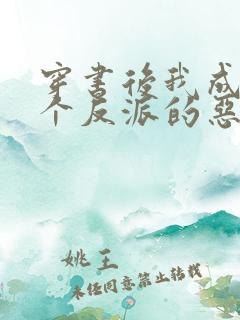 穿書後我成
个反派的惡
姚王
未经同意禁止转载